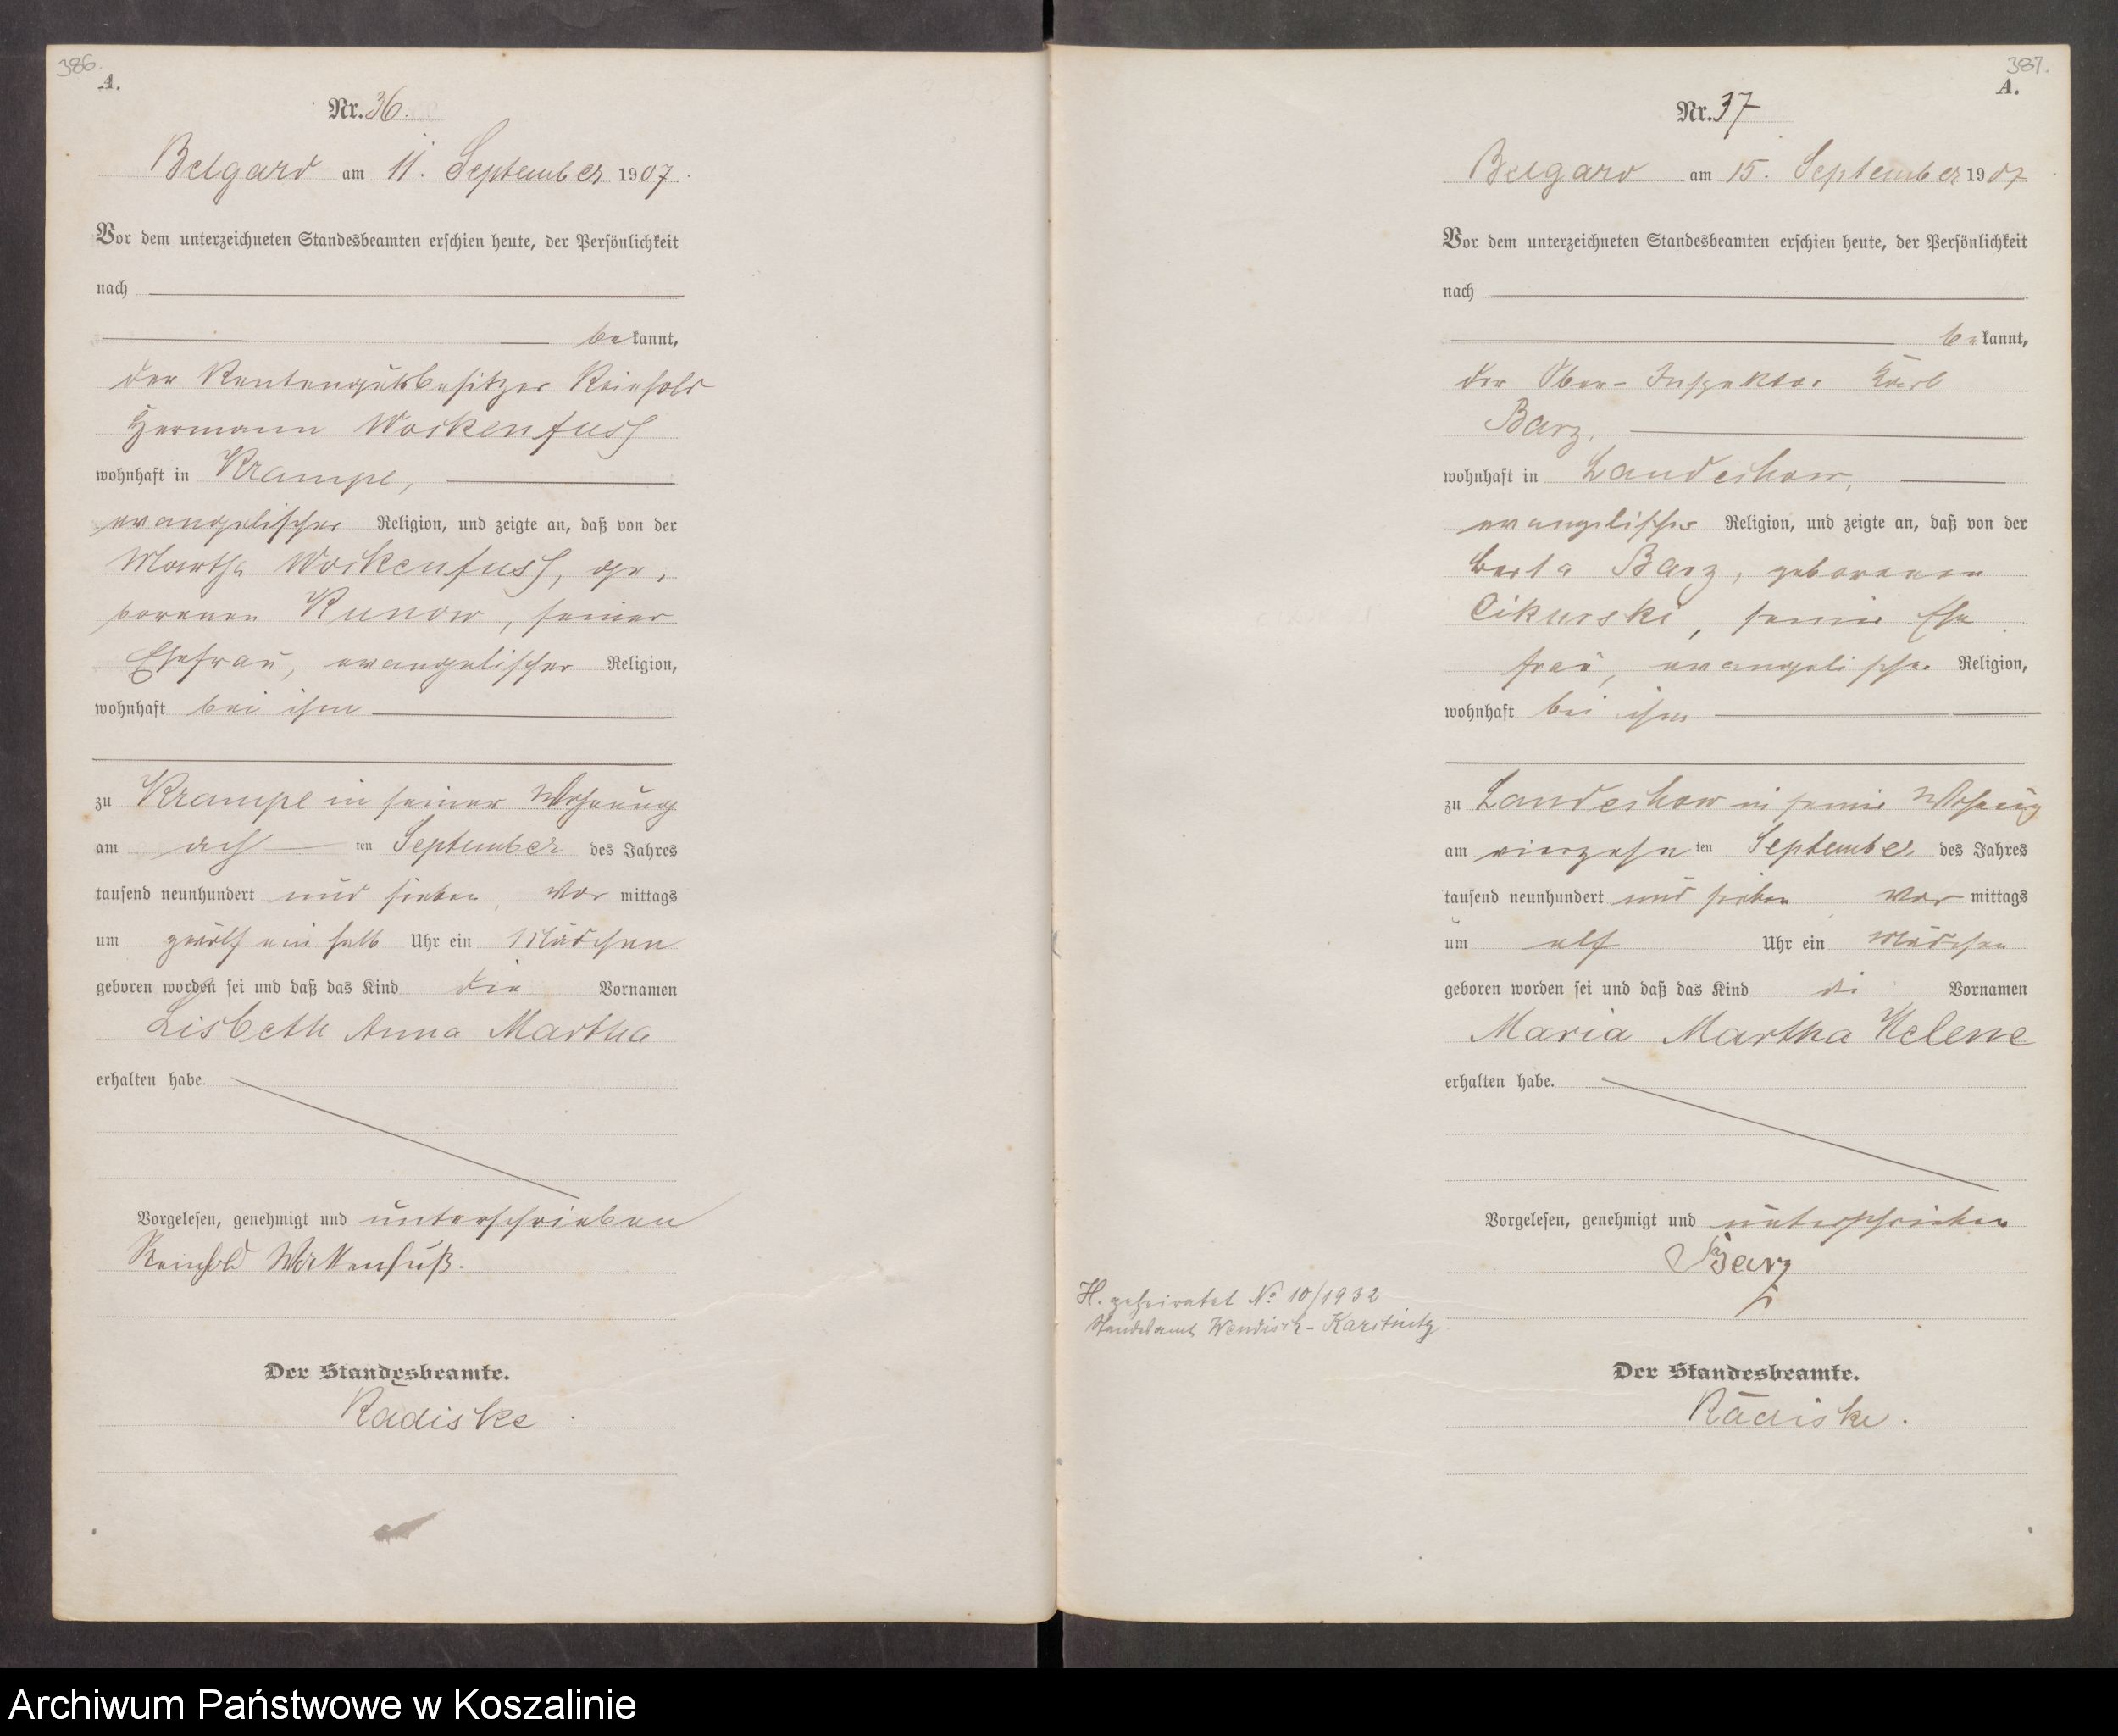 386.
A.
Nr. 36.
Belgard am 11. September 1907.
Vor dem unterzeichneten Standesbeamten erschien heute, der Persönlichkeit
nach
be kannt,
der Rentengutsbesitzer Reinhold
Hermann Wockenfuss
wohnhaft in Krampe,
evangelischer Religion, und zeigte an, daß von der
Martha Wockenfuss, ge-
borenen Kunow, seiner
Ehefrau, evangelischer Religion,
wohnhaft bei ihm
zu Krampe in seiner Wohnung
am ach ten September des Jahres
tausend neunhundert und sieben, Vor mittags
um zwölf ein halb Uhr ein Mädchen
geboren worden sei und daß das Kind die Vornamen
Lisbeth Anna Martha
erhalten habe.
Vorgelesen, genehmigt und unterschrieben
Reinhold Wockenfuß.
Der Standesbeamte.
Radiske
387.
A.
Nr. 37
Belgard am 15. September 1907
Vor dem unterzeichneten Standesbeamten erschien heute, der Persönlichkeit
nach
be kannt,
der Ober-Inspektor Karl
Barz,
wohnhaft in Landechow,
evangelischer Religion, und zeigte an, daß von der
Berta Barz, geborenen
Cikurski, seiner Ehe
frau, evangelischer Religion,
wohnhaft bei ihm
zu Landechow in seiner Wohnung
am vierzehn ten September des Jahres
tausend neunhundert und sieben, Vor mittags
um elf Uhr ein Mädchen
geboren worden sei und daß das Kind die Vornamen
Maria Martha Helene
erhalten habe.
Vorgelesen, genehmigt und unterschrieben
Barz
H. geheiratet No 10/1932
Standesamt Wendisch-Karstnitz
Der Standesbeamte.
Radiske.
Archiwum Państwowe w Koszalinie